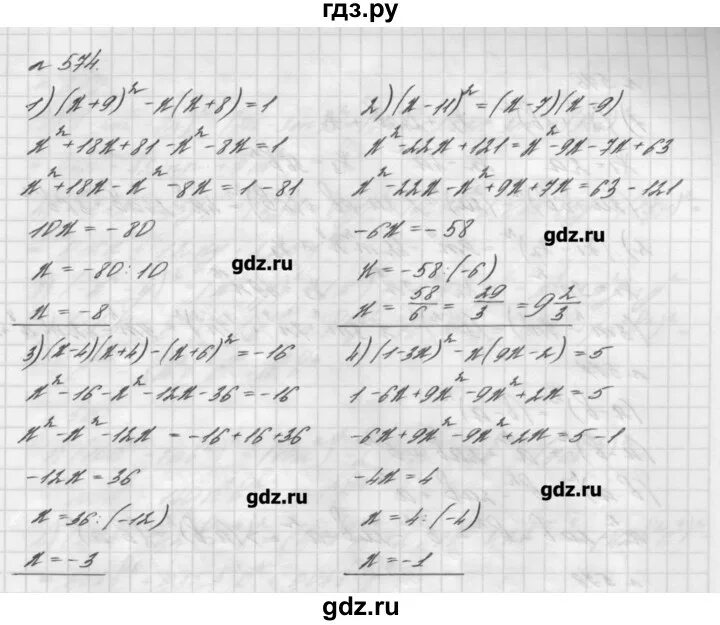 гдз.ру
n 574.
1) (x+9)² - x(x+8) = 1
x² + 18x + 81 - x² - 8x = 1
x² + 18x - x² - 8x = 1 - 81
10x = -80
x = -80 : 10
gdz.ru
x = -8
2) (x-11)² = (x-7)(x-9)
x² - 22x + 121 = x² - 9x - 7x + 63
x² - 22x - x² + 9x + 7x = 63 - 121
-6x = -58
gdz.ru
x = -58 : (-6)
x = 58/6 = 29/3 = 9 2/3
3) (x-4)(x+4) - (x+6)² = -16
x² - 16 - x² - 12x - 36 = -16
x² - x² - 12x = -16 + 16 + 36
-12x = 36
gdz.ru
x = 36 : (-12)
x = -3
4) (1-3x)² - x(9x-2) = 5
1 - 6x + 9x² - 9x² + 2x = 5
-6x + 9x² - 9x² + 2x = 5 - 1
-4x = 4
gdz.ru
x = 4 : (-4)
x = -1
gdz.ru